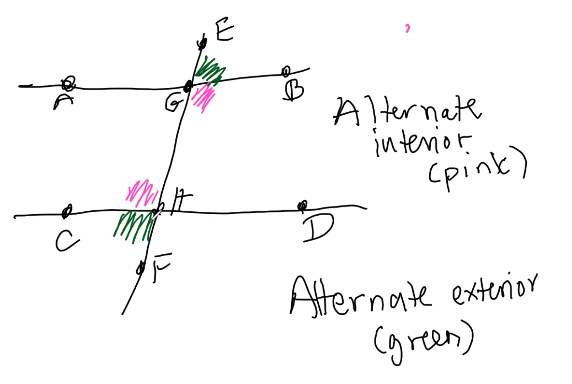 E
A
G
B
Alternate
interior
(pink)
H
C
D
F
Alternate exterior
(green)